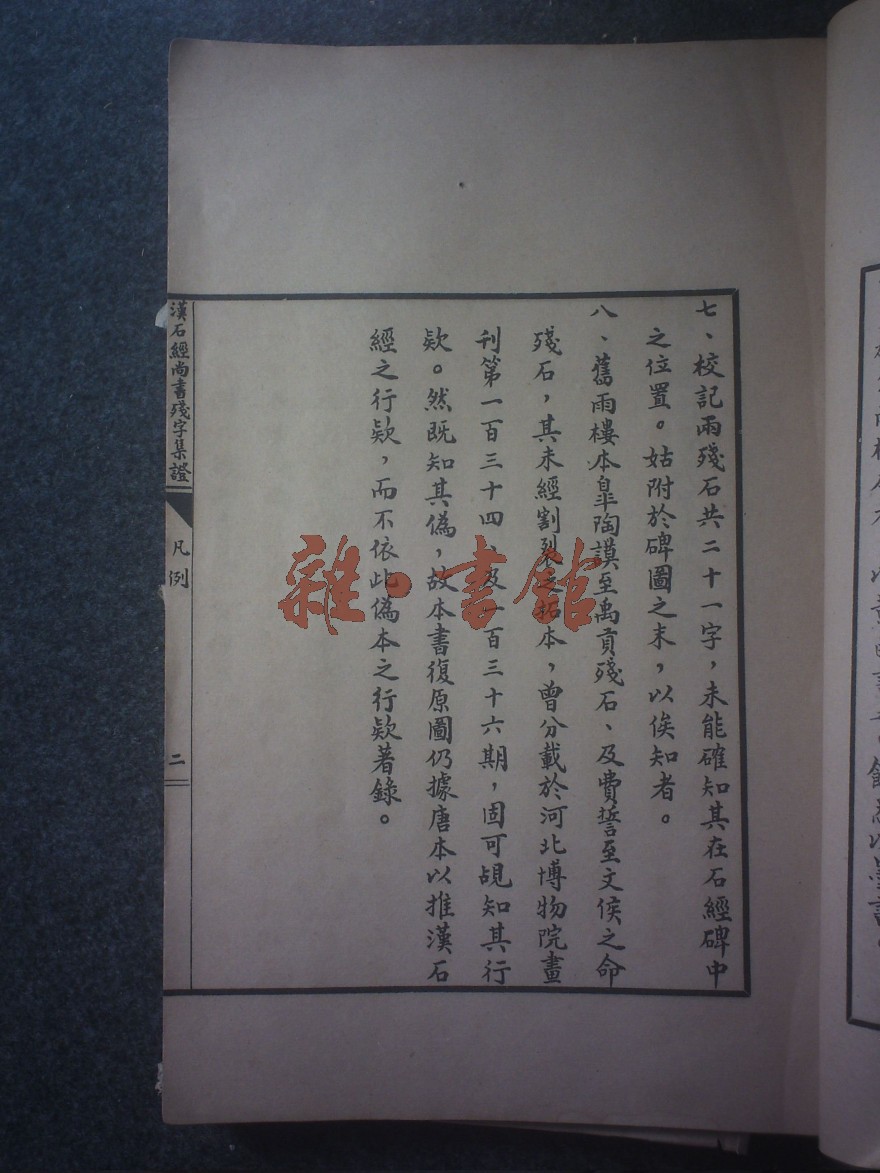 七、校記兩殘石共二十一字，未能確知其在石經碑中
之位置。姑附於碑圖之末，以俟知者。
八、舊雨樓本臯陶謨至禹貢殘石、及費誓至文侯之命
殘石，其未經割裂之拓本，曾分載於河北博物院畫
刊第一百三十四、及一百三十六期，固可覘知其行
欵。然既知其偽，故本書復原圖仍據唐本以推漢石
經之行欵，而不依此偽本之行欵著錄。
漢石經尚書殘字集證
凡例
二
雜·書館